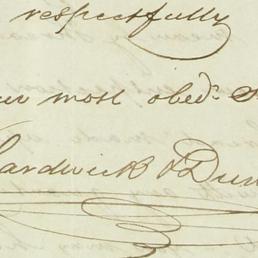 respectfully
ur most obedt S
ardwick & Dun